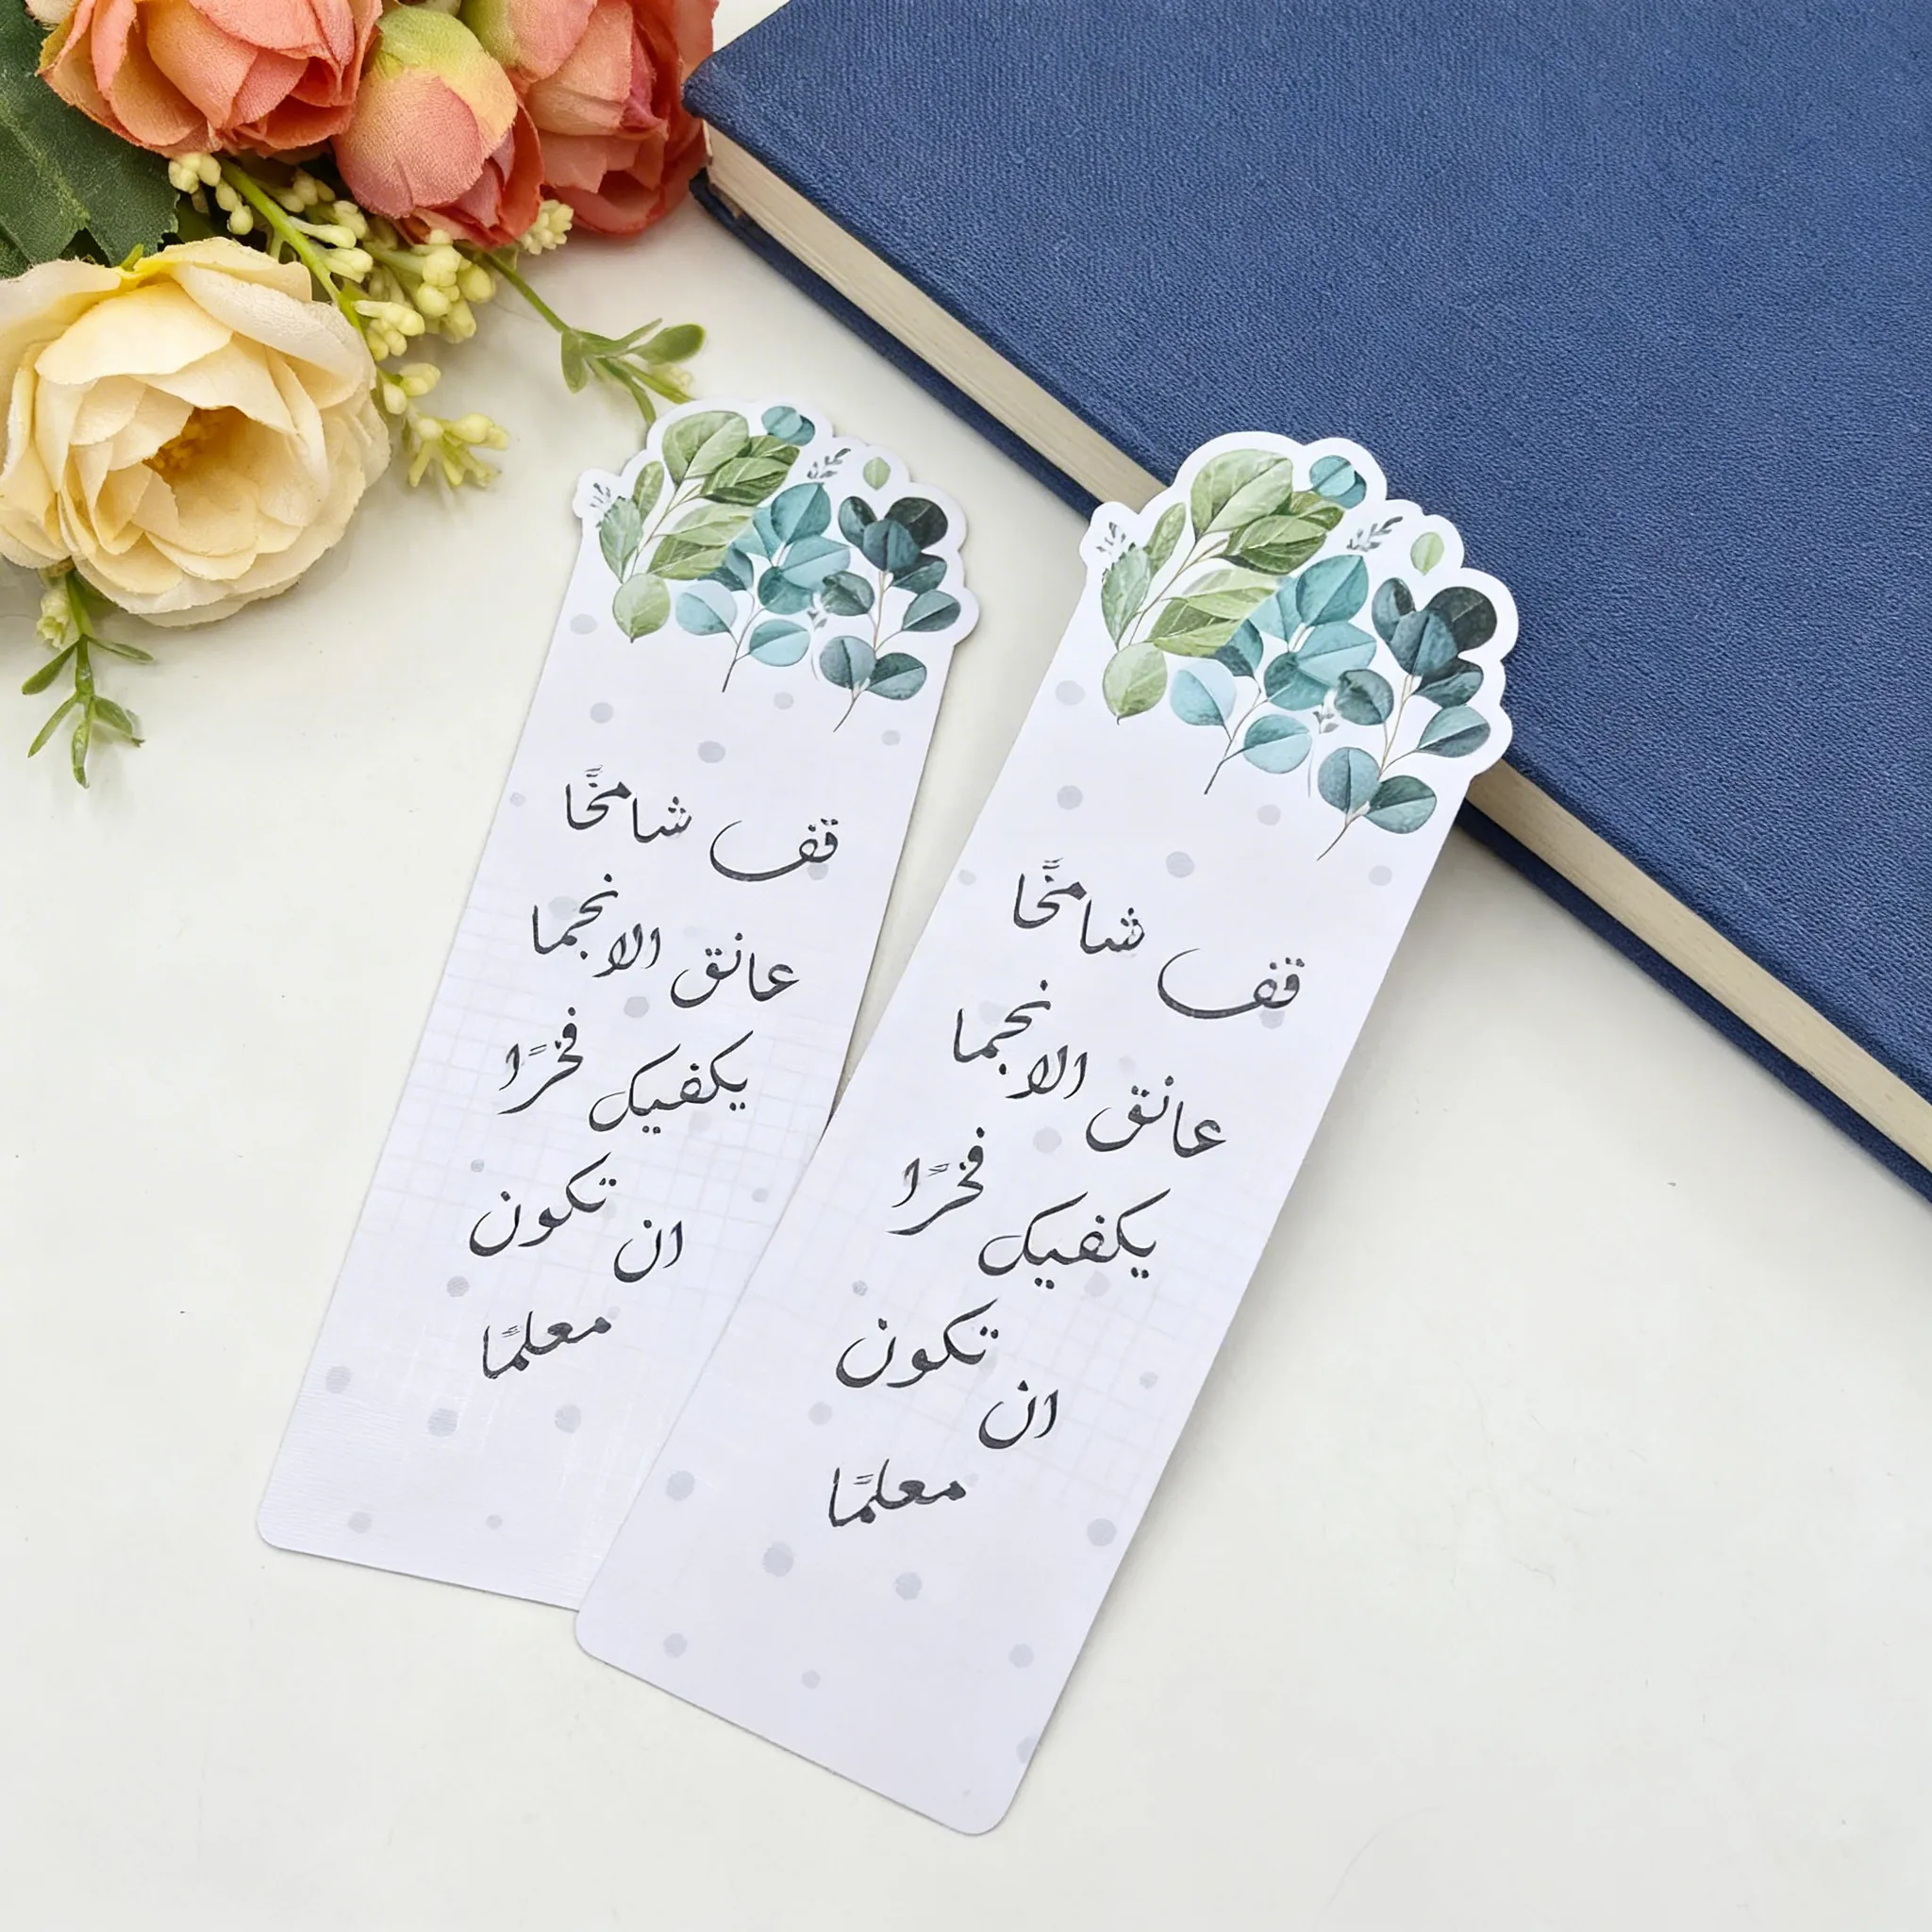 قف شامخًا
عانق الانجما
يكفيك فخرًا
ان تكون
معلمًا
قف شامخًا
عانق الانجما
يكفيك فخرًا
ان تكون
معلمًا